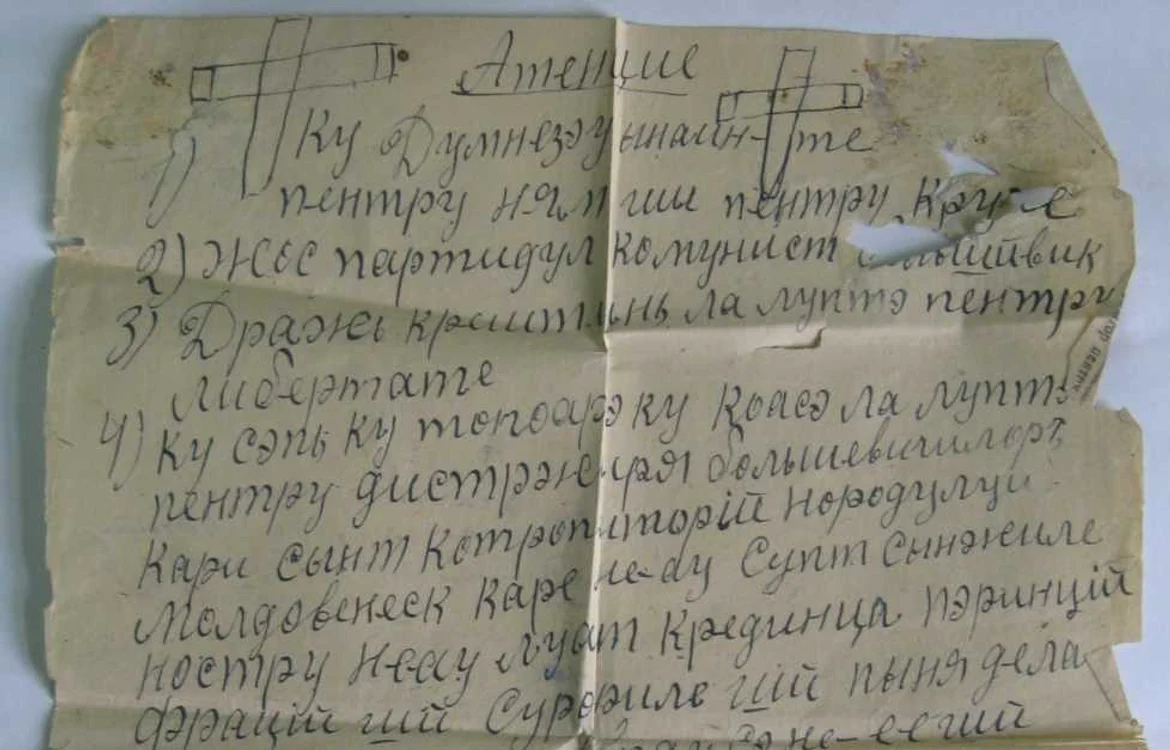 Атенцие
1) Ку Думнезэу ынаин-те
пентру ням ши пентру Круче
2) Жос партидул комунист
3) Дражь крештинь ла луптэ пентру
либертате
4) Ку сэпь ку топоарэ ку коасэ ла луптэ
пентру дистрэжиря большевичилорь
Кари сынт котропиторій нородулуй
Молдовенеск каре не-ау супт сынжиле
ностру неау луат крединца пэринцій
фраций ший сурориле ший пыня дела